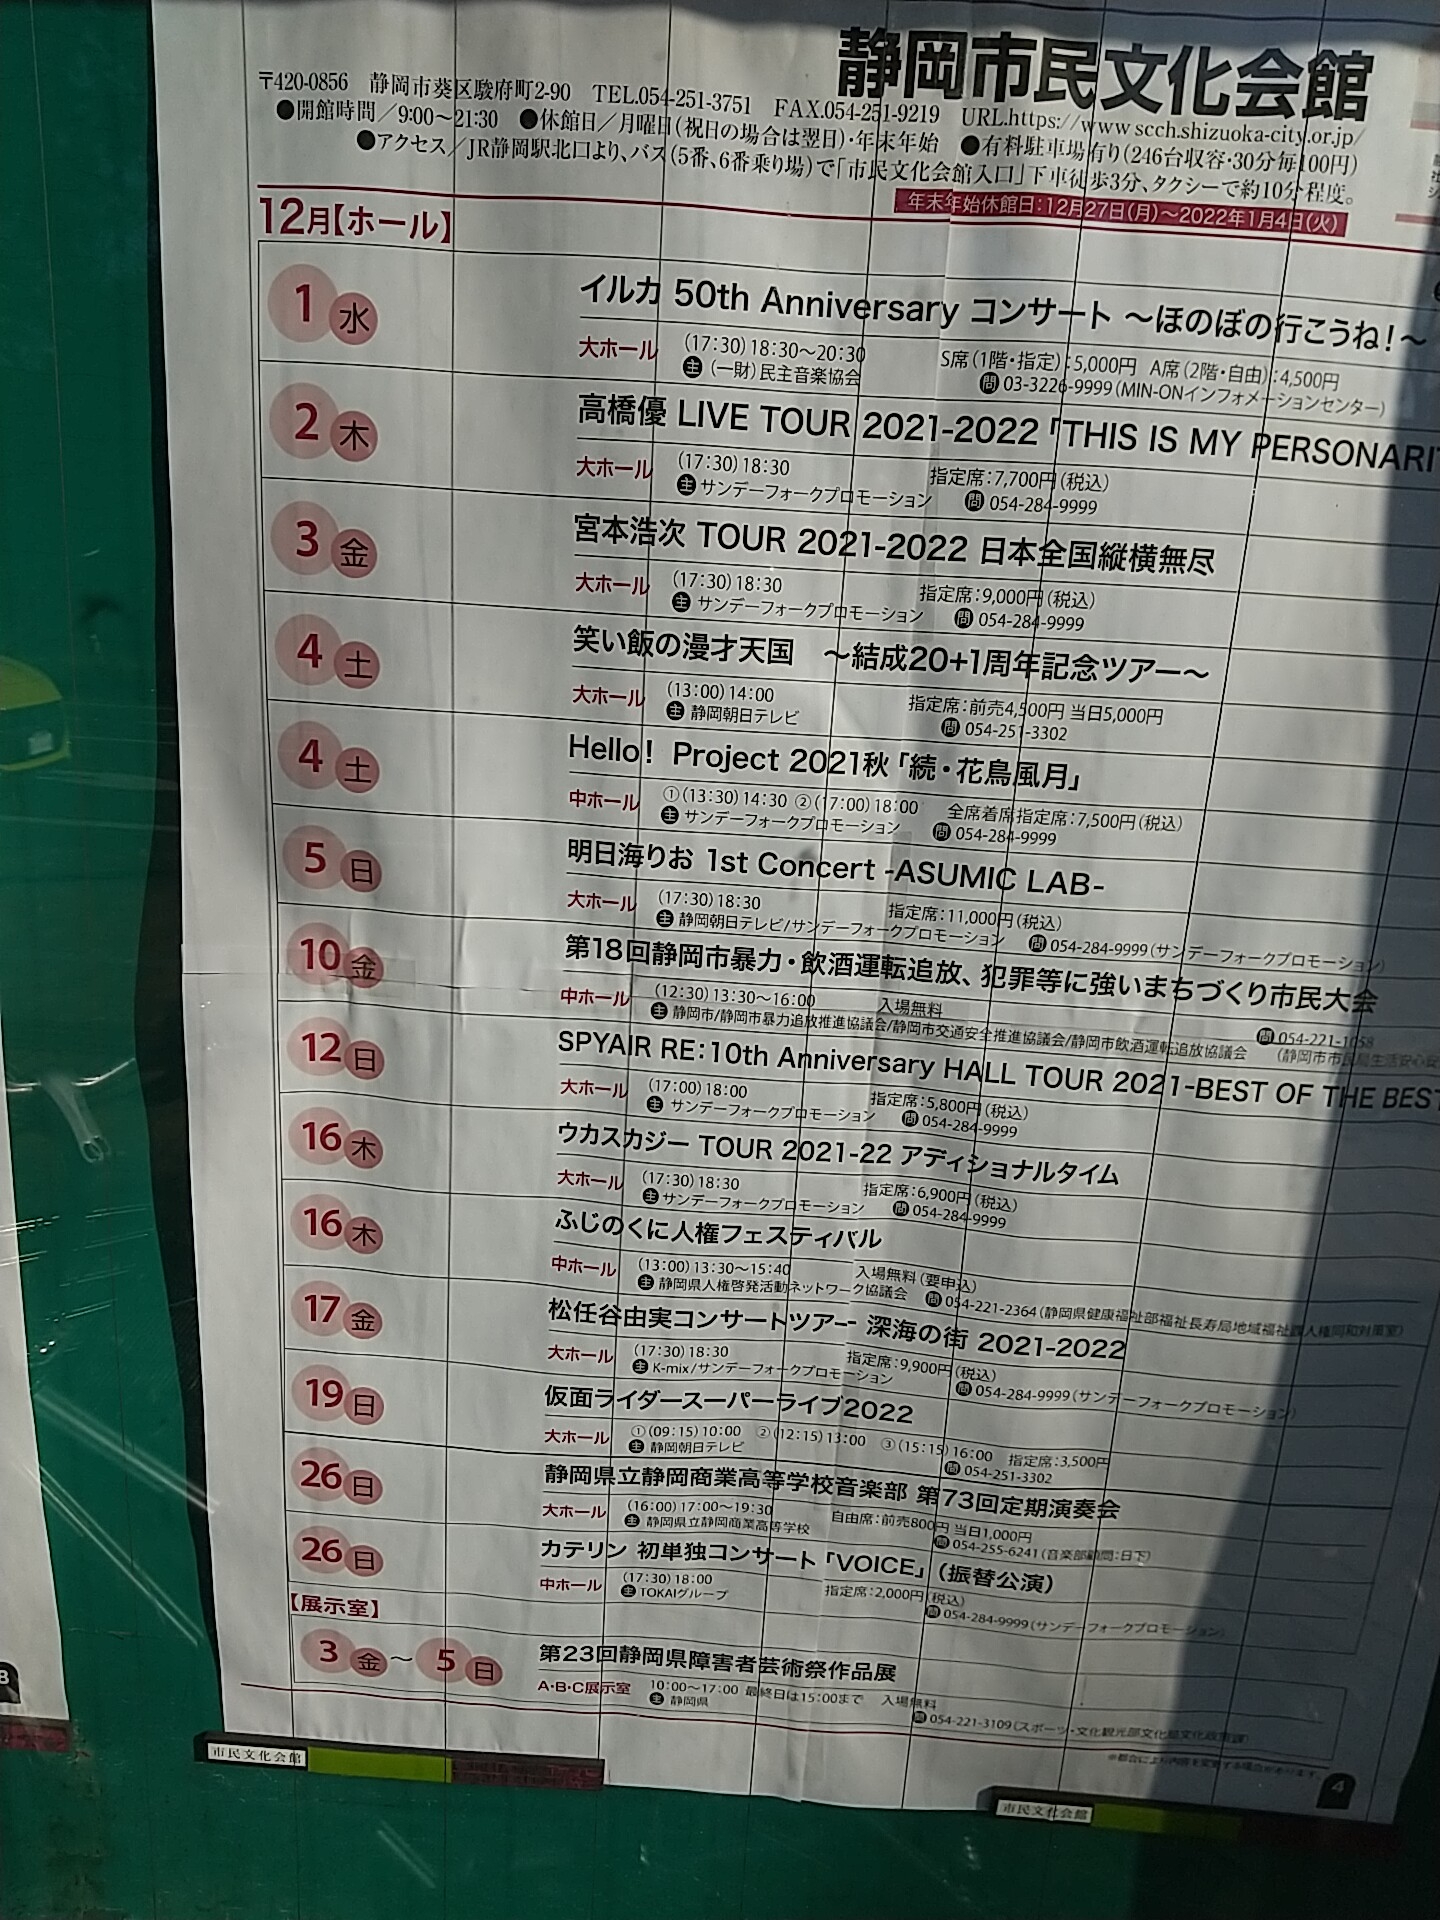 静岡市民文化会館
〒420-0856 静岡市葵区駿府町2-90 TEL.054-251-3751 FAX.054-251-9219 URL.https://www.scch.shizuoka-city.or.jp/
●開館時間/9:00〜21:30 ●休館日/月曜日(祝日の場合は翌日)・年末年始 ●有料駐車場有り(246台収容・30分毎100円)
●アクセス/JR静岡駅北口より、バス(5番、6番乗り場)で「市民文化会館入口」下車徒歩3分、タクシーで約10分程度。
年末年始休館日:12月27日(月)〜2022年1月4日(火)
12月【ホール】
1 水 イルカ 50th Anniversary コンサート 〜ほのぼの行こうね!〜
大ホール (17:30)18:30〜20:30 S席(1階・指定):5,000円 A席(2階・自由):4,500円
主(一財)民主音楽協会 問 03-3226-9999(MIN-ONインフォメーションセンター)
2 木 高橋優 LIVE TOUR 2021-2022「THIS IS MY PERSONARI
大ホール (17:30)18:30 指定席:7,700円(税込)
主 サンデーフォークプロモーション 問 054-284-9999
3 金 宮本浩次 TOUR 2021-2022 日本全国縦横無尽
大ホール (17:30)18:30 指定席:9,000円(税込)
主 サンデーフォークプロモーション 問 054-284-9999
4 土 笑い飯の漫才天国 〜結成20+1周年記念ツアー〜
大ホール (13:00)14:00 指定席:前売4,500円 当日5,000円
主 静岡朝日テレビ 問 054-251-3302
4 土 Hello! Project 2021秋「続・花鳥風月」
中ホール ①(13:30)14:30 ②(17:00)18:00 全席着席指定席:7,500円(税込)
主 サンデーフォークプロモーション 問 054-284-9999
5 日 明日海りお 1st Concert -ASUMIC LAB-
大ホール (17:30)18:30 指定席:11,000円(税込)
主 静岡朝日テレビ/サンデーフォークプロモーション 問 054-284-9999(サンデーフォークプロモーション)
10 金 第18回静岡市暴力・飲酒運転追放、犯罪等に強いまちづくり市民大会
中ホール (12:30)13:30〜16:00 入場無料
主 静岡市/静岡市暴力追放推進協議会/静岡市交通安全推進協議会/静岡市飲酒運転追放協議会 問 054-221-1058
(静岡市市民局生活安心安
12 日 SPYAIR RE:10th Anniversary HALL TOUR 2021-BEST OF THE BEST
大ホール (17:00)18:00 指定席:5,800円(税込)
主 サンデーフォークプロモーション 問 054-284-9999
16 木 ウカスカジー TOUR 2021-22 アディショナルタイム
大ホール (17:30)18:30 指定席:6,900円(税込)
主 サンデーフォークプロモーション 問 054-284-9999
16 木 ふじのくに人権フェスティバル
中ホール (13:00)13:30〜15:40 入場無料(要申込)
主 静岡県人権啓発活動ネットワーク協議会 問 054-221-2364(静岡県健康福祉部福祉長寿局地域福祉課人権同和対策室)
17 金 松任谷由実コンサートツアー 深海の街 2021-2022
大ホール (17:30)18:30 指定席:9,900円(税込)
主 K-mix/サンデーフォークプロモーション 問 054-284-9999(サンデーフォークプロモーション)
19 日 仮面ライダースーパーライブ2022
大ホール ①(09:15)10:00 ②(12:15)13:00 ③(15:15)16:00 指定席:3,500円
主 静岡朝日テレビ 問 054-251-3302
26 日 静岡県立静岡商業高等学校音楽部 第73回定期演奏会
大ホール (16:00)17:00〜19:30 自由席:前売800円 当日1,000円
主 静岡県立静岡商業高等学校 問 054-255-6241(音楽部顧問:日下)
26 日 カテリン 初単独コンサート「VOICE」(振替公演)
中ホール (17:30)18:00 指定席:2,000円(税込)
主 TOKAIグループ 問 054-284-9999(サンデーフォークプロモーション)
【展示室】
3 金 〜 5 日 第23回静岡県障害者芸術祭作品展
A・B・C展示室 10:00〜17:00 最終日は15:00まで 入場無料
主 静岡県 問 054-221-3109(スポーツ・文化観光部文化局文化政策課)
※都合により内容を変更する場合があります。
4
市民文化会館
市民文化会館